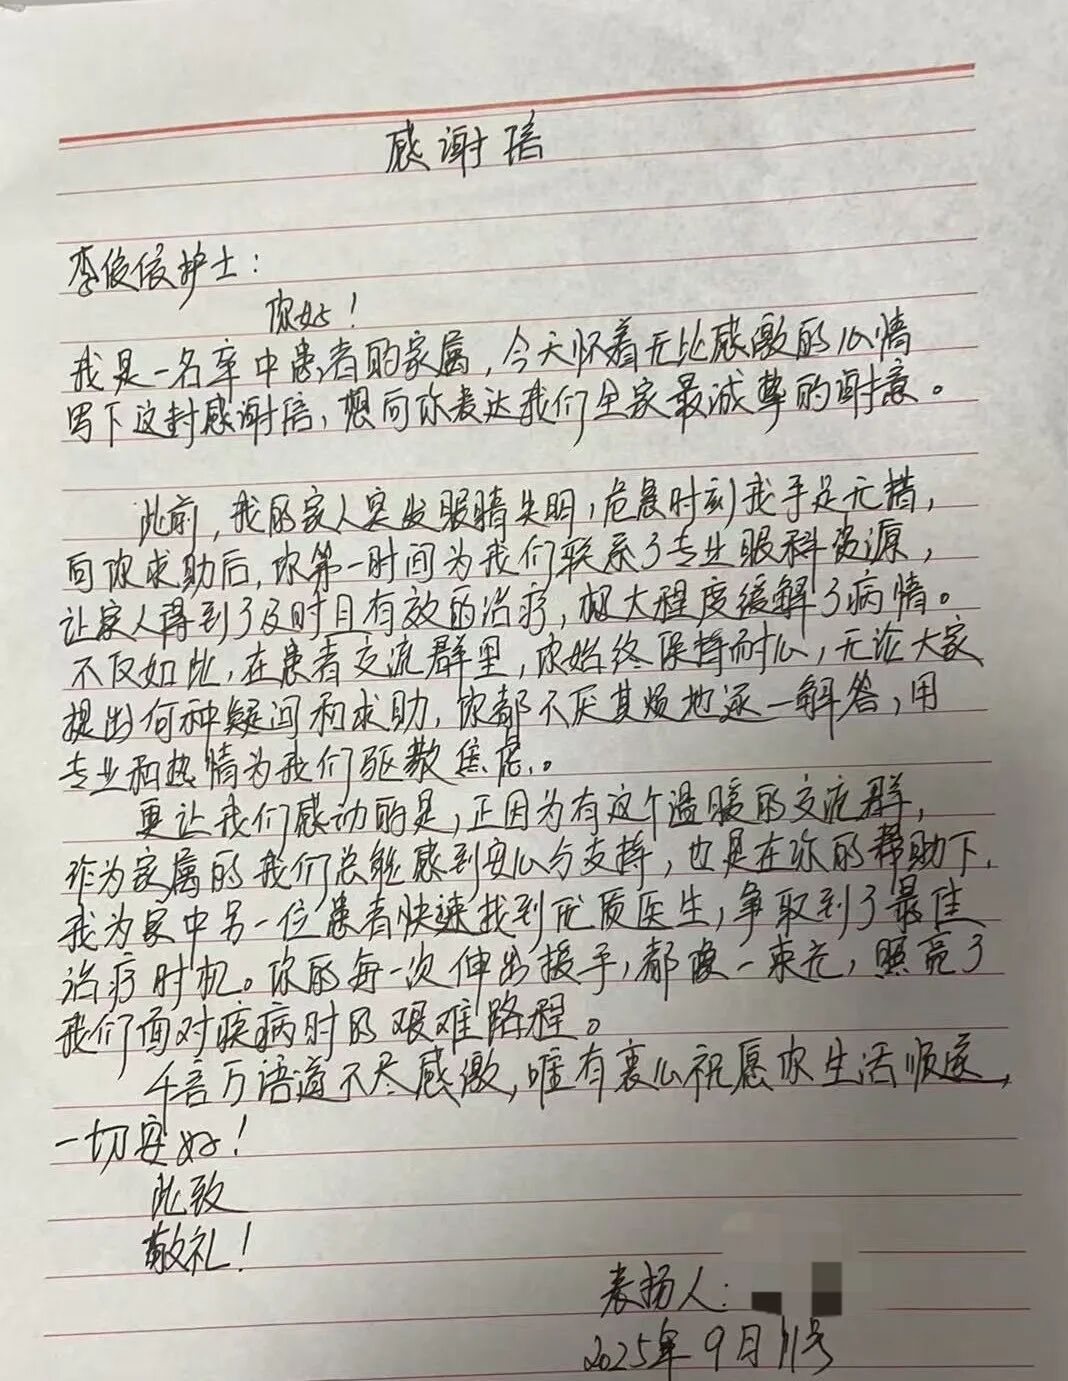 感谢信
李俊俊护士：
你好！
我是一名卒中患者的家属，今天怀着无比感激的心情
写下这封感谢信，想向你表达我们全家最诚挚的谢意。
此前，我的家人突发眼睛失明，危急时刻我手足无措，
向你求助后，你第一时间为我们联系了专业眼科资源，
让家人得到了及时且有效的治疗，极大程度缓解了病情。
不仅如此，在患者交流群里，你始终保持耐心，无论大家
提出何种疑问和求助，你都不厌其烦地逐一解答，用
专业和热情为我们驱散焦虑。
更让我们感动的是，正因为有这个温暖的交流群，
作为家属的我们总能感到安心与支持，也是在你的帮助下，
我为家中另一位患者快速找到优质医生，争取到了最佳
治疗时机。你的每一次伸出援手，都像一束光，照亮了
我们面对疾病时的艰难路程。
千言万语道不尽感激，唯有衷心祝愿你生活顺遂，
一切安好！
此致
敬礼！
表扬人：
2025年9月11号